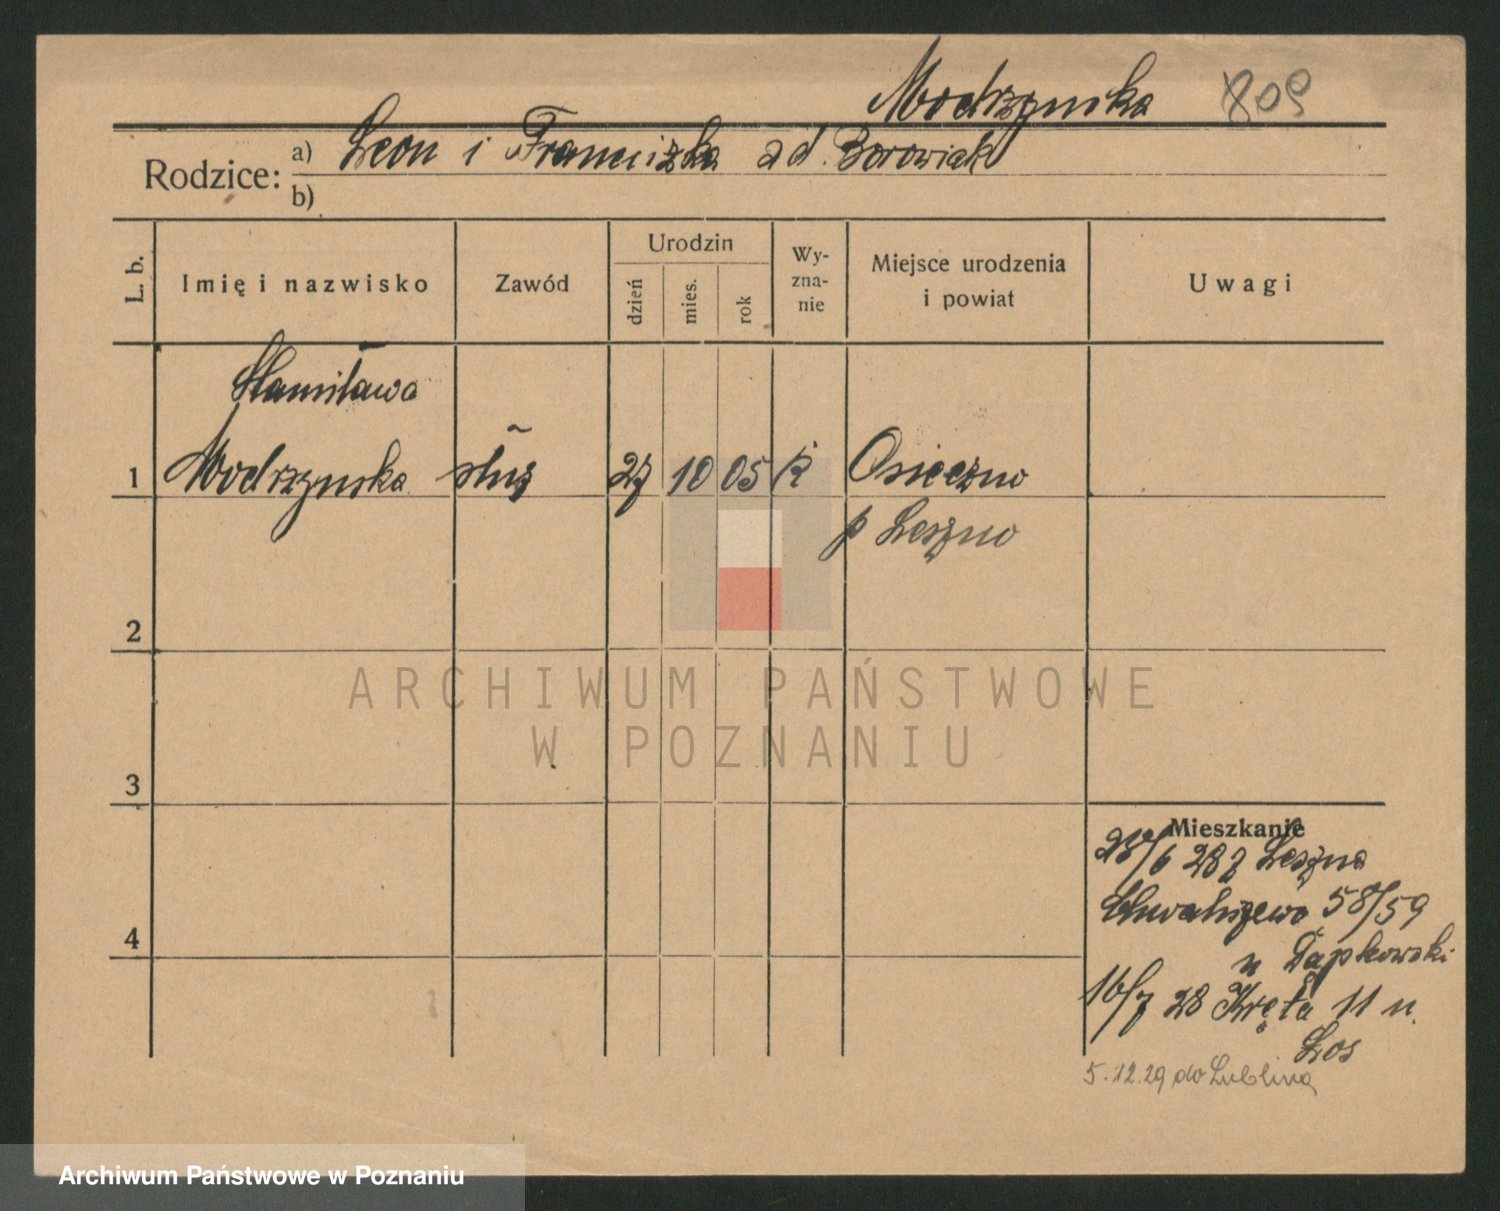 Modrzynska 809
Rodzice: a) Leon i Franciszka ad. Borowiak
b)
L. b. Imię i nazwisko Zawód Urodzin dzień mies. rok Wy-zna-nie Miejsce urodzenia i powiat Uwagi
Stanisława
1 Modrzynska służ 27 10 05 R Osieczno
p Leszno
2
3
4
Mieszkanie
25/6 28 z Leszna
Chwaliszewo 58/59
u Dąpkowski
16/7 28 Kręta 11 u
Łos
5.12.29 do Lublina
ARCHIWUM PAŃSTWOWE
W POZNANIU
Archiwum Państwowe w Poznaniu